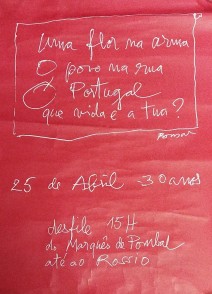 Uma flor na arma
O povo na rua
Ó Portugal
que vida é a tua?
25 de Abril 30 anos
desfile 15H
do Marquês de Pombal
até ao Rossio